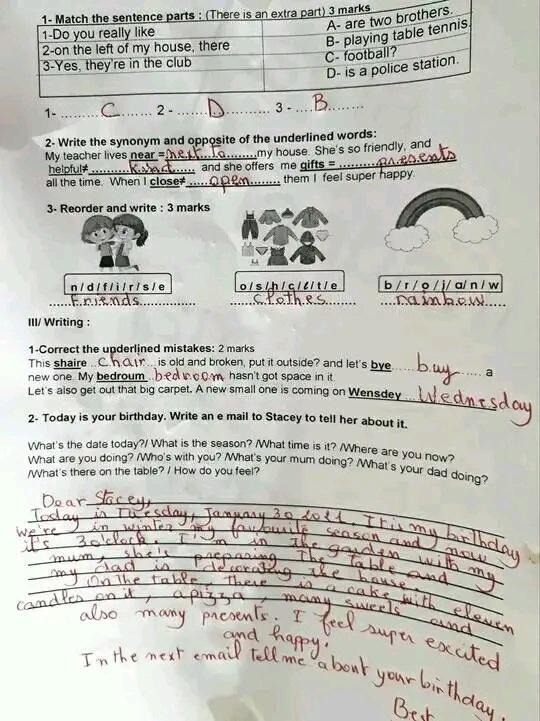 1- Match the sentence parts : (There is an extra part) 3 marks
1-Do you really like
2-on the left of my house, there
3-Yes, they're in the club
A- are two brothers.
B- playing table tennis.
C- football?
D- is a police station.
1- ......C...... 2 - ......D...... 3 - ....B......
2- Write the synonym and opposite of the underlined words:
My teacher lives near =next to......my house. She's so friendly, and
helpful≠ ......kind...... and she offers me gifts = ......presents
all the time. When I close≠ ....open...... them I feel super happy.
3- Reorder and write : 3 marks
n/d/f/i/r/s/e
o/s/h/c/l/t/e
b/r/o/i/a/n/w
Friends
clothes
rainbow
III/ Writing :
1-Correct the underlined mistakes: 2 marks
This shaire ..chair.. is old and broken, put it outside? and let's bye ......buy...... a
new one. My bedroum ..bedroom.. hasn't got space in it.
Let's also get out that big carpet. A new small one is coming on Wensdey ...Wednesday
2- Today is your birthday. Write an e mail to Stacey to tell her about it.
What's the date today?/ What is the season? /What time is it? /Where are you now?
What are you doing? /Who's with you? /What's your mum doing? /What's your dad doing?
/What's there on the table? / How do you feel?
Dear Stacey,
Today is Tuesday, January 30 . It is my birthday
we're in winter my favourite season and now
it's 3o'clock. I'm in the garden with my
mum, she's preparing the table and
my dad is decorating the house.
On the table, there is a cake with eleven
candles on it, a pizza, many sweets and
also many presents. I feel super excited
and happy.
In the next email tell me about your birthday.
Best